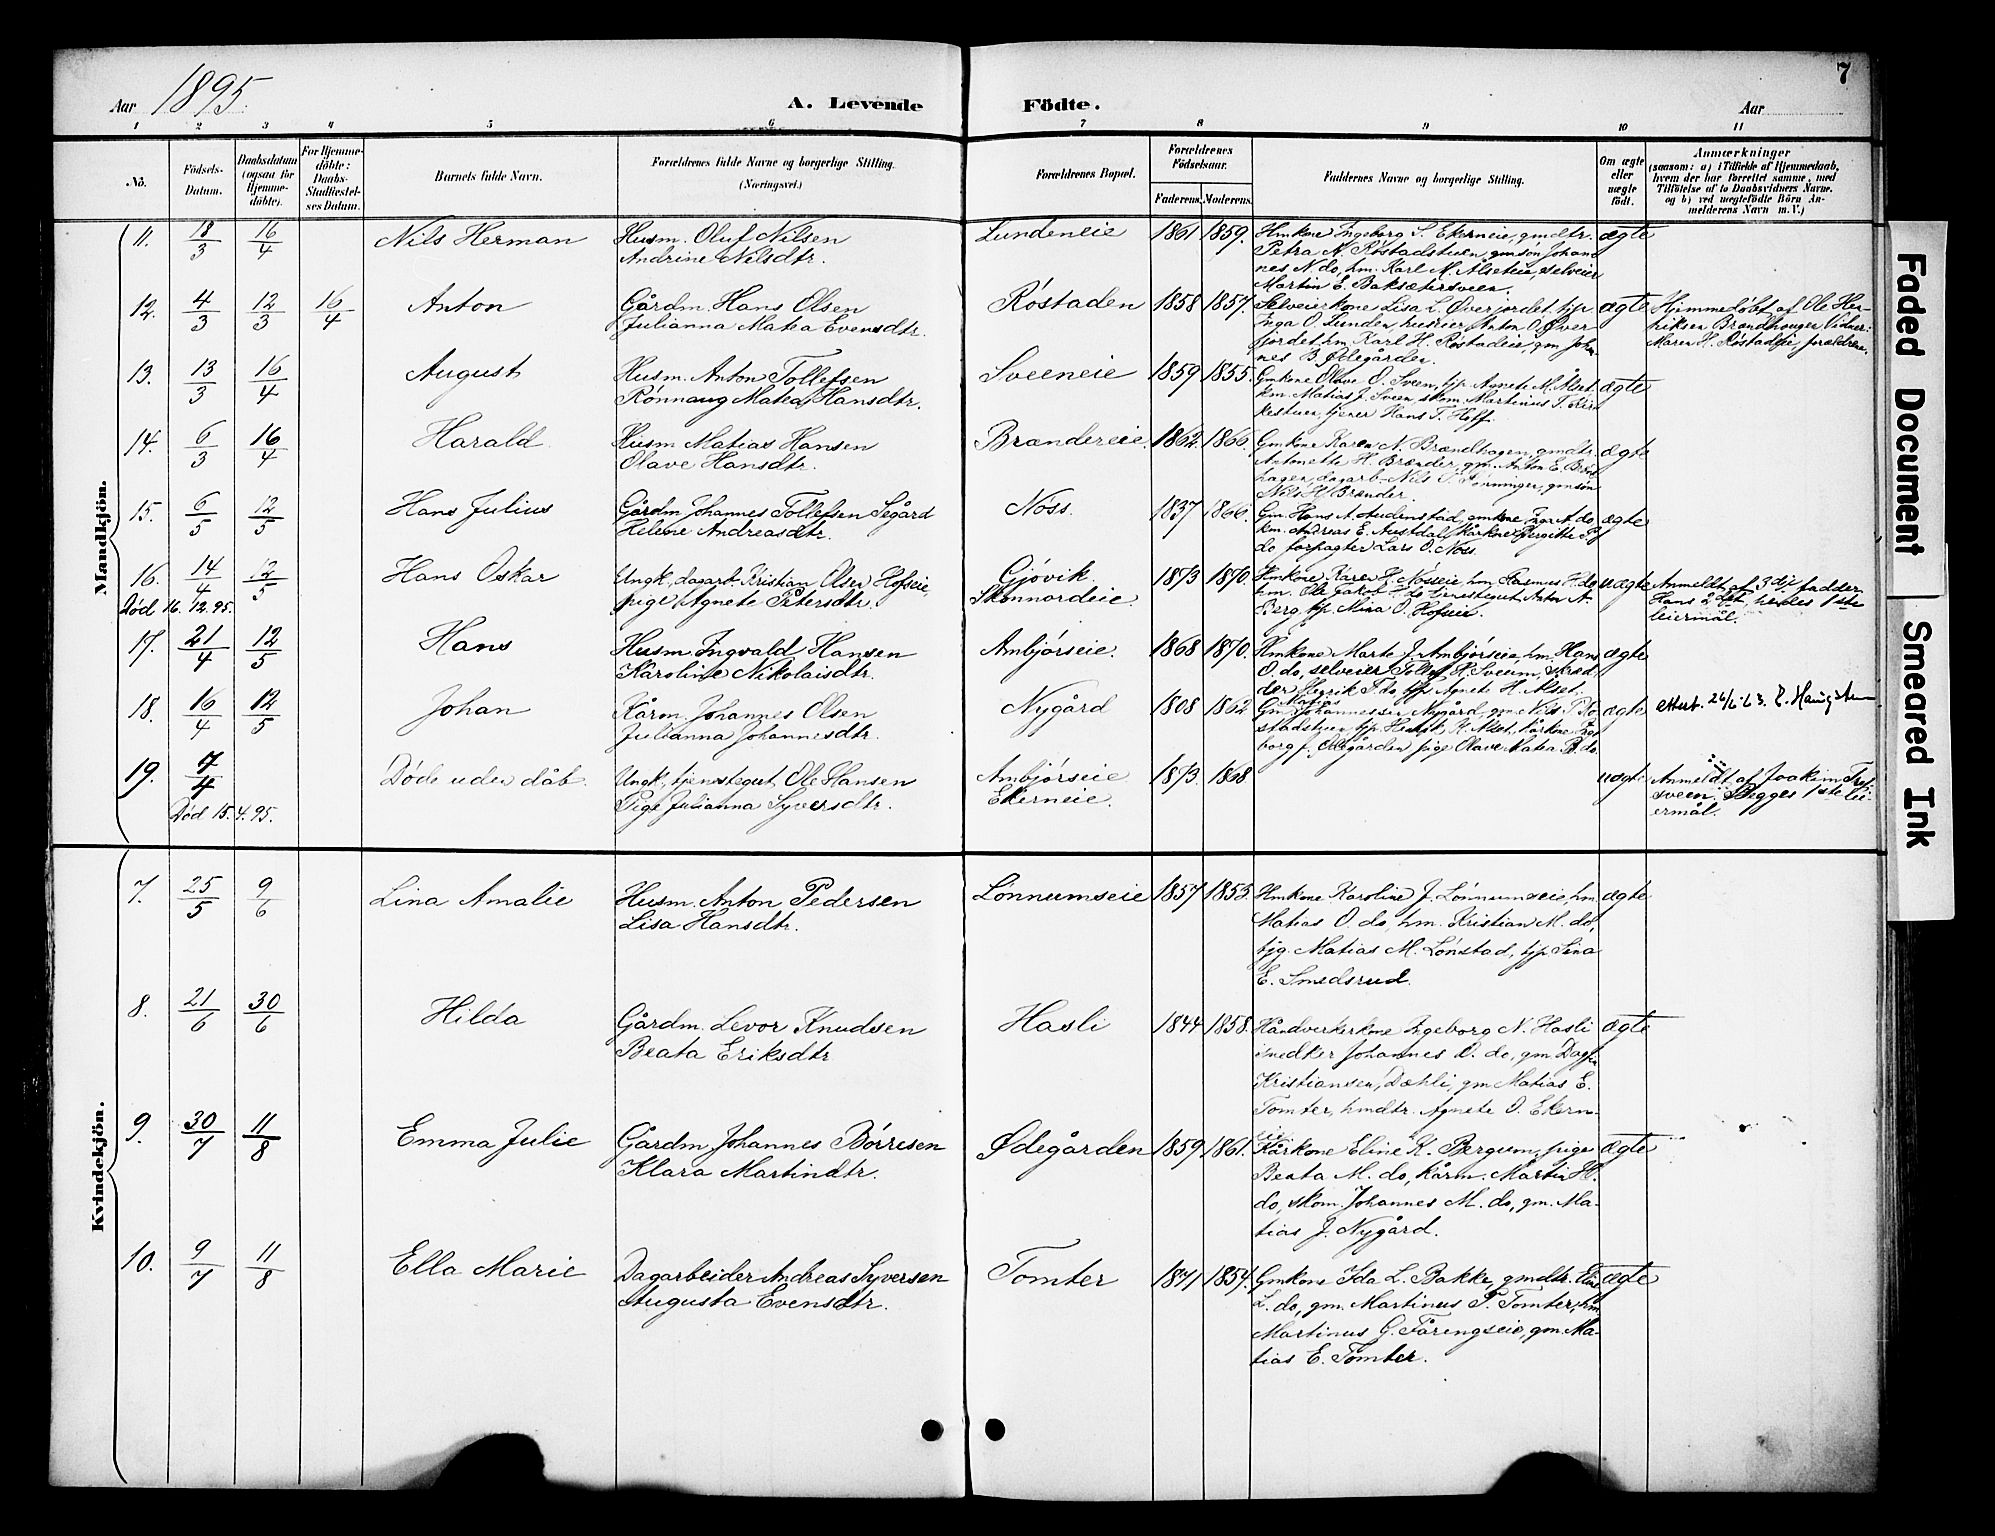 7
Aar 1895.
A. Levende Födte.
Aar
1 2 3 4 5 6 7 8 9 10 11
No.
Födsels-
Datum.
Daabsdatum
(ogsaa for
Hjemme-
döbte).
For Hjemme-
döbte:
Daabs-
Stadfæstel-
ses Datum.
Barnets fulde Navn.
Forældrenes fulde Navne og borgerlige Stilling.
(Næringsvei.)
Forældrenes Bopæl.
Forældrenes
Födselsaar.
Faderens. Moderens.
Faddernes Navne og borgerlige Stilling.
Om ægte
eller
uægte
födt.
Anmærkninger
(saasom: a) i Tilfælde af Hjemmedaab,
hvem der har forrettet samme, med
Tilföielse af to Daabsvidners Navne,
og b) ved uægtefödte Börn An-
melderens Navn m. V.)
Mandkjön.
11. 18/3 16/4 Nils Herman
Husm. Oluf Nilsen
Andrine Nilsdtr.
Lundeneie 1861 1859.
Hmkone Ingeborg S. Ekerneie, gmdtr.
Petra N. Røstadstuen, gmsøn Johan
nes N. do, hm. Karl M. Alseteie, selveier
Martin E. Baksætersveen.
ægte
12. 4/3 12/3 16/4 Anton
Gårdm. Hans Olsen
Julianna Matea Evensdtr.
Røstaden 1858 1857.
Selveierkone Lisa L. Øverjordet, tjp.
Inga O. Lunden, huseier Anton O. Øver
jordet, hm. Karl H. Røstadeie, gm Johan
nes B. Ødegården.
ægte
Hjemmedøbt af Ole Hen-
riksen Brændhougen. Vidner:
Maren H. Røstadeie, forældrene.
13. 13/3 16/4 August
Husm. Anton Tollefsen
Rønnaug Matea Hansdtr.
Sveeneie 1859 1855.
Gmkone Olave O. Sveen, tjp. Agnete M. Alset
km. Matias J. Sveen, skom. Martinus T. Kir
kestuen, tjener Hans T. Hoff.
ægte
14. 6/3 16/4 Harald
Husm Matias Hansen
Olave Hansdtr.
Brændereie. 1862. 1866.
Gmkone Karen N. Brændhagen, gmdtr.
Antonette H. Brænder, gm. Anton E. Brænd
hagen, dagarb. Nils gmsøn
Nils H. Brænder.
ægte
15. 6/5 12/5 Hans Julius
Gårdm Johannes Tollefsen Segård
Helene Andreasdtr.
Nøss. 1837 1866.
Gm. Hans A. Audenstad, gmkone Inga A. do,
km. Andreas E. Austdal, kårkone Bergitte P.
do forpagter Lars O. Nøss.
ægte
16. 14/4 12/5 Hans Oskar
Død 16. 12. 95.
Ungk., dagarb. Kristian Olsen Hofseie,
pige Agnete Pedersdtr.
Gjøvik
Skonnordeie. 1873 1870.
Hmkone Karen H. Nøsseie, hm Rasmus H. do
hm. Ole tjenestegut Anton A.
Berg, tjp. Mina O. Hofseie.
uægte
Anmeldt af 3die fadder
Hans 2det, hendes 1ste
leiermål.
17. 21/4 12/5 Hans
Husm. Ingvald Hansen
Karoline Nikolaisdtr.
Ambjørseie. 1868 1870.
Hmkone Marte J. Ambjørseie, hm. Hans
O. do, selveier Tollef H. Sveum,
Henrik T. do, tjp. Agnete H. Alset.
ægte
18. 16/4 12/5 Johan
Kårm. Johannes Olsen
Julianna Johannesdtr.
Nygård 1808 1862
Matias
Gm. Johannessen Nygård, gm. Nils P.
stadstuen, tjp. Henrik K. Alset, kårkone Inge
borg J. Ødegården pige Olave Matea B. do
ægte
attest. 26/6 63.
19. 7/4 Døde uden dåb.
Død 15. 4. 95.
Ungk., tjenestegut Ole Hansen
Pige Julianna Syversdtr.
Ambjørseie
Ekerneie. 1873. 1868
uægte
Anmeldt af Joakim
sveen. Begges 1ste lei-
ermål.
Kvindekjön.
7. 25/5 9/6 Lina Amalie
Husm. Anton Pedersen
Lisa Hansdtr.
Lønnumseie 1857 1853.
Hmkone Karoline J. Lønnumseie, hm.
Matias O. do, hm. Kristian M. do,
tjg. Matias M. Lønstad, tjp Lina
E. Smedsrud.
ægte
8. 21/6 30/6 Hilda
Gårdm. Levor Knudsen
Beata Eriksdtr
Hasli 1844 1858.
Håndverkerkone Ingeborg N. Hasli
snedker Johannes O. do, gm Dagfin
Kristiansen, Dæhli, gm Matias E.
Tomter, hmdtr. Agnete O. Ekern-
eie.
ægte
9. 30/7 11/8 Emma Julie
Gårdm. Johannes Børresen
Klara Martindtr.
Ødegården 1859 1861.
Kårkone Eline K. Bergum, pige
Beata M. do, kårm. Martin H.
do, skom. Johannes M. do, gm. Ma-
tias J. Nygård.
ægte
10. 9/7 11/8 Ella Marie
Dagarbeider Andreas Syversen
Augusta Evensdtr.
Tomter 1871 1854.
Gmkone Ida L. Bakke, gmdtr. Eline
L. do, gm. Martinus P. Tomter, hm
Martinus G. Fårengseie, gm. Ma-
tias E. Tomter.
ægte
Faded Document
Smeared Ink